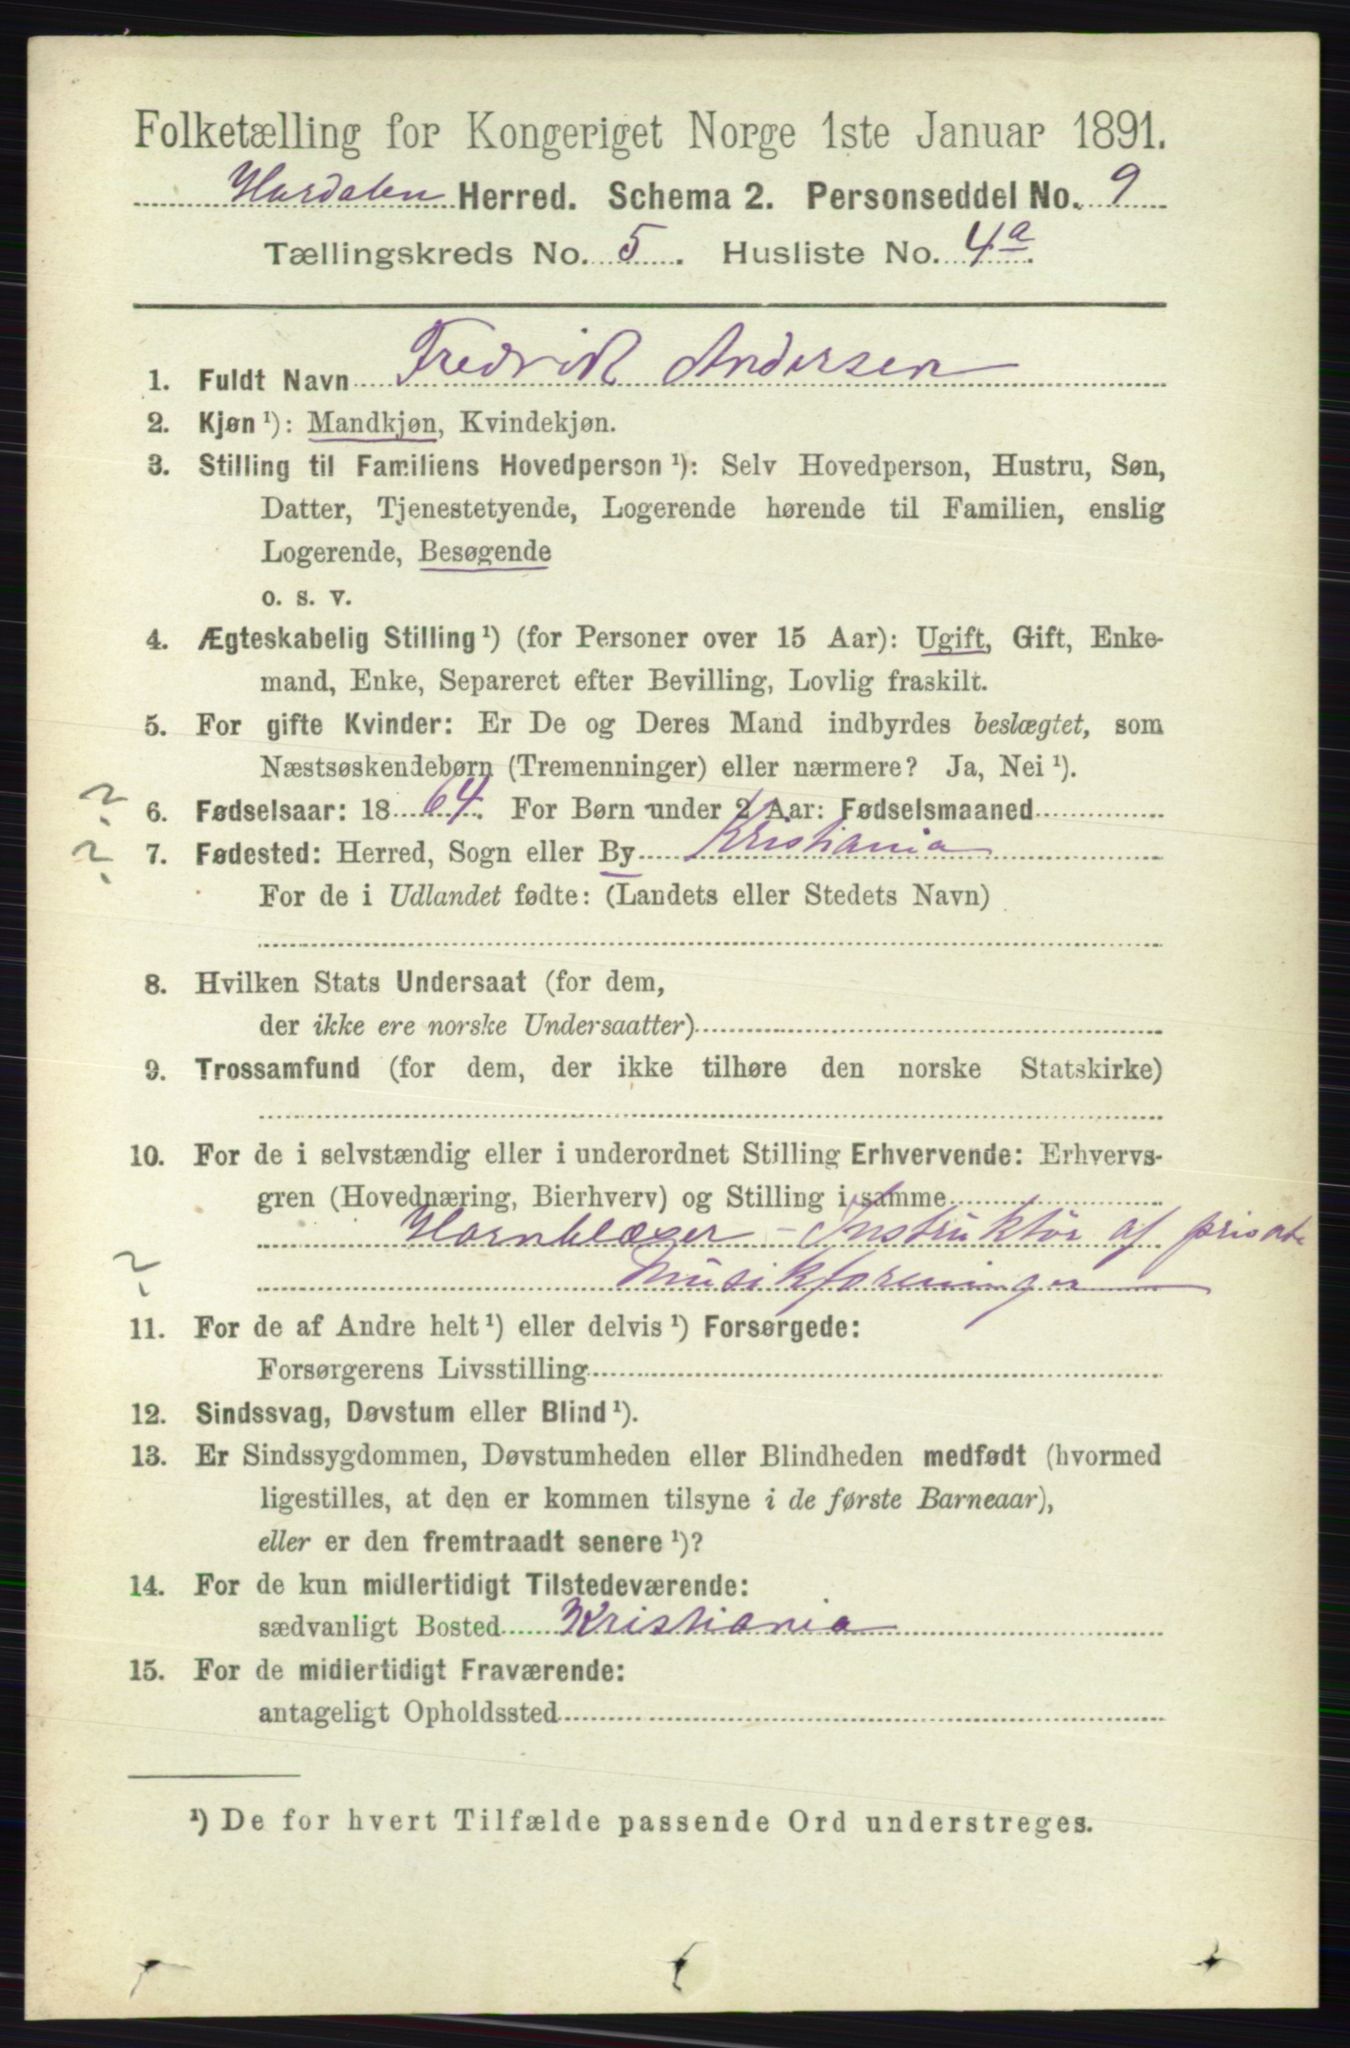 Folketælling for Kongeriget Norge 1ste Januar 1891.
Hurdalen Herred. Schema 2. Personseddel No. 9
Tællingskreds No. 5. Husliste No. 4a.
1. Fuldt Navn Fredrik Andersen
2. Kjøn¹): Mandkjøn, Kvindekjøn.
3. Stilling til Familiens Hovedperson¹): Selv Hovedperson, Hustru, Søn,
Datter, Tjenestetyende, Logerende hørende til Familien, enslig
Logerende, Besøgende
o. s. v.
4. Ægteskabelig Stilling¹) (for Personer over 15 Aar): Ugift, Gift, Enke-
mand, Enke, Separeret efter Bevilling, Lovlig fraskilt.
5. For gifte Kvinder: Er De og Deres Mand indbyrdes beslægtet, som
Næstsøskendebørn (Tremenninger) eller nærmere? Ja, Nei¹).
? 6. Fødselsaar: 1864. For Børn under 2 Aar: Fødselsmaaned
? 7. Fødested: Herred, Sogn eller By Kristiania
For de i Udlandet fødte: (Landets eller Stedets Navn)
8. Hvilken Stats Undersaat (for dem,
der ikke ere norske Undersaatter)
9. Trossamfund (for dem, der ikke tilhøre den norske Statskirke)
10. For de i selvstændig eller i underordnet Stilling Erhvervende: Erhvervs-
gren (Hovednæring, Bierhverv) og Stilling i samme
Hornblæser - Instruktør af private
? Musikforeninger
11. For de af Andre helt¹) eller delvis¹) Forsørgede:
Forsørgerens Livsstilling
12. Sindssvag, Døvstum eller Blind¹).
13. Er Sindssygdommen, Døvstumheden eller Blindheden medfødt (hvormed
ligestilles, at den er kommen tilsyne i de første Barneaar),
eller er den fremtraadt senere¹)?
14. For de kun midlertidigt Tilstedeværende:
sædvanligt Bosted Kristiania
15. For de midlertidigt Fraværende:
antageligt Opholdssted
¹) De for hvert Tilfælde passende Ord understreges.